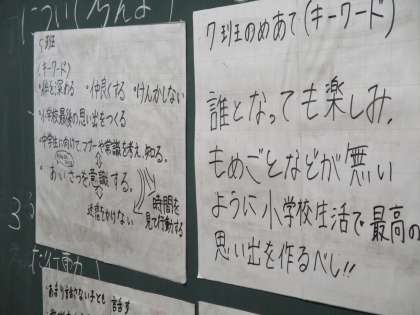 5班
(キーワード)
・絆を深める ・仲良くする ・けんかしない
・小学校最後の思い出をつくる
・中学生に向けて、マナーや常識を考え、知る。
・あいさつを意識する。
迷惑をかけない
時間を
見て行動する
7班のめあて(キーワード)
誰となっても楽しみ、
もめごとなどが無い
ように小学校生活で最高の
思い出を作るべし!!